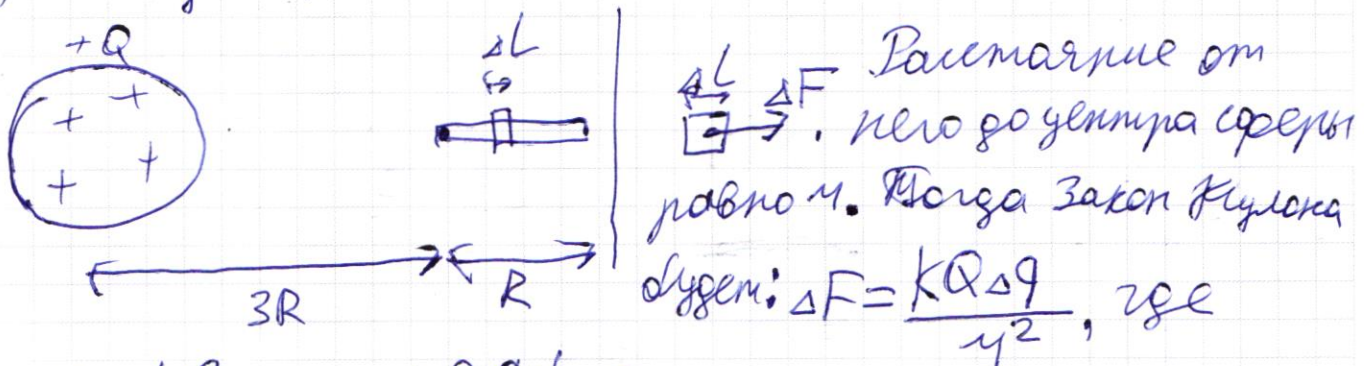 +Q
ΔL
3R
R
ΔL ΔF Расстояние от
него до центра сферы
равно r. Тогда Закон Кулона
будет: ΔF = kQΔq/r², где